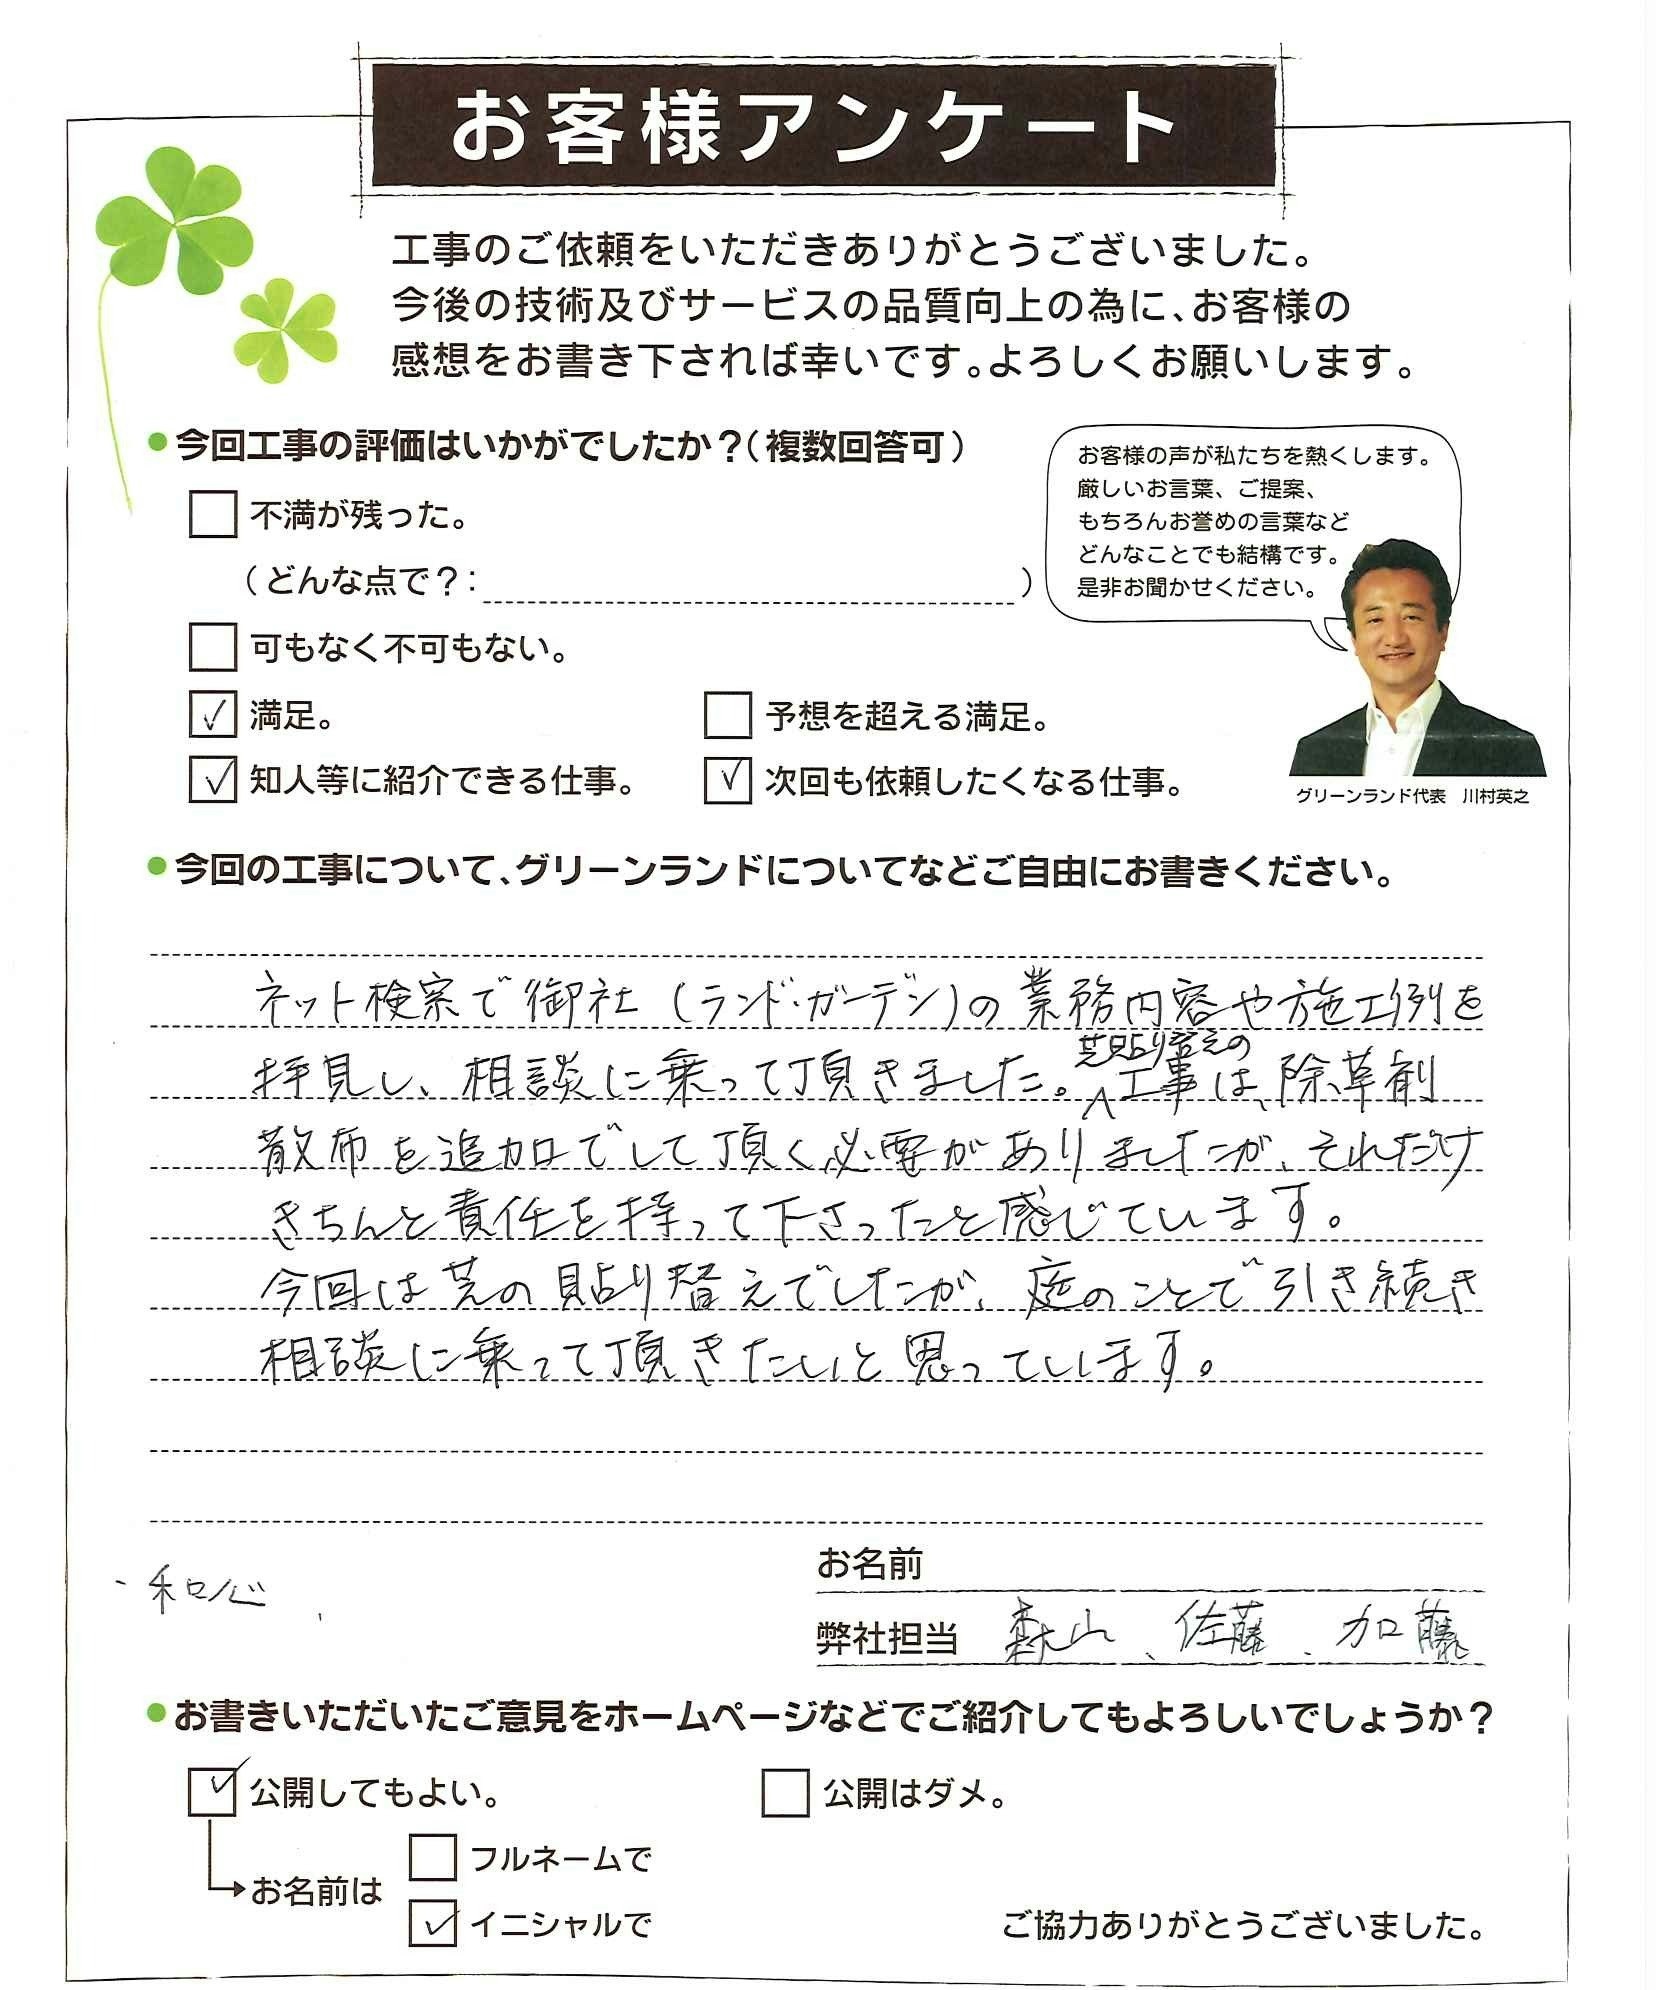 お客様アンケート
工事のご依頼をいただきありがとうございました。
今後の技術及びサービスの品質向上の為に、お客様の
感想をお書き下されば幸いです。よろしくお願いします。
今回工事の評価はいかがでしたか？（複数回答可）
不満が残った。
（どんな点で？：　）
可もなく不可もない。
満足。
予想を超える満足。
知人等に紹介できる仕事。
次回も依頼したくなる仕事。
お客様の声が私たちを熱くします。
厳しいお言葉、ご提案、
もちろんお誉めの言葉など
どんなことでも結構です。
是非お聞かせください。
グリーンランド代表　川村英之
今回の工事について、グリーンランドについてなどご自由にお書きください。
ネット検索で御社（ランド・ガーデン）の業務内容や施工例を
拝見し、相談に乗って頂きました。芝貼り替えの工事は、除草剤
散布を追加でして頂く必要がありましたが、それだけ
きちんと責任を持って下さったと感じています。
今回は芝の貼り替えでしたが、庭のことで引き続き
相談に乗って頂きたいと思っています。
お名前
・和心
弊社担当　森山、佐藤、加藤
お書きいただいたご意見をホームページなどでご紹介してもよろしいでしょうか？
公開してもよい。
公開はダメ。
お名前は
フルネームで
イニシャルで
ご協力ありがとうございました。